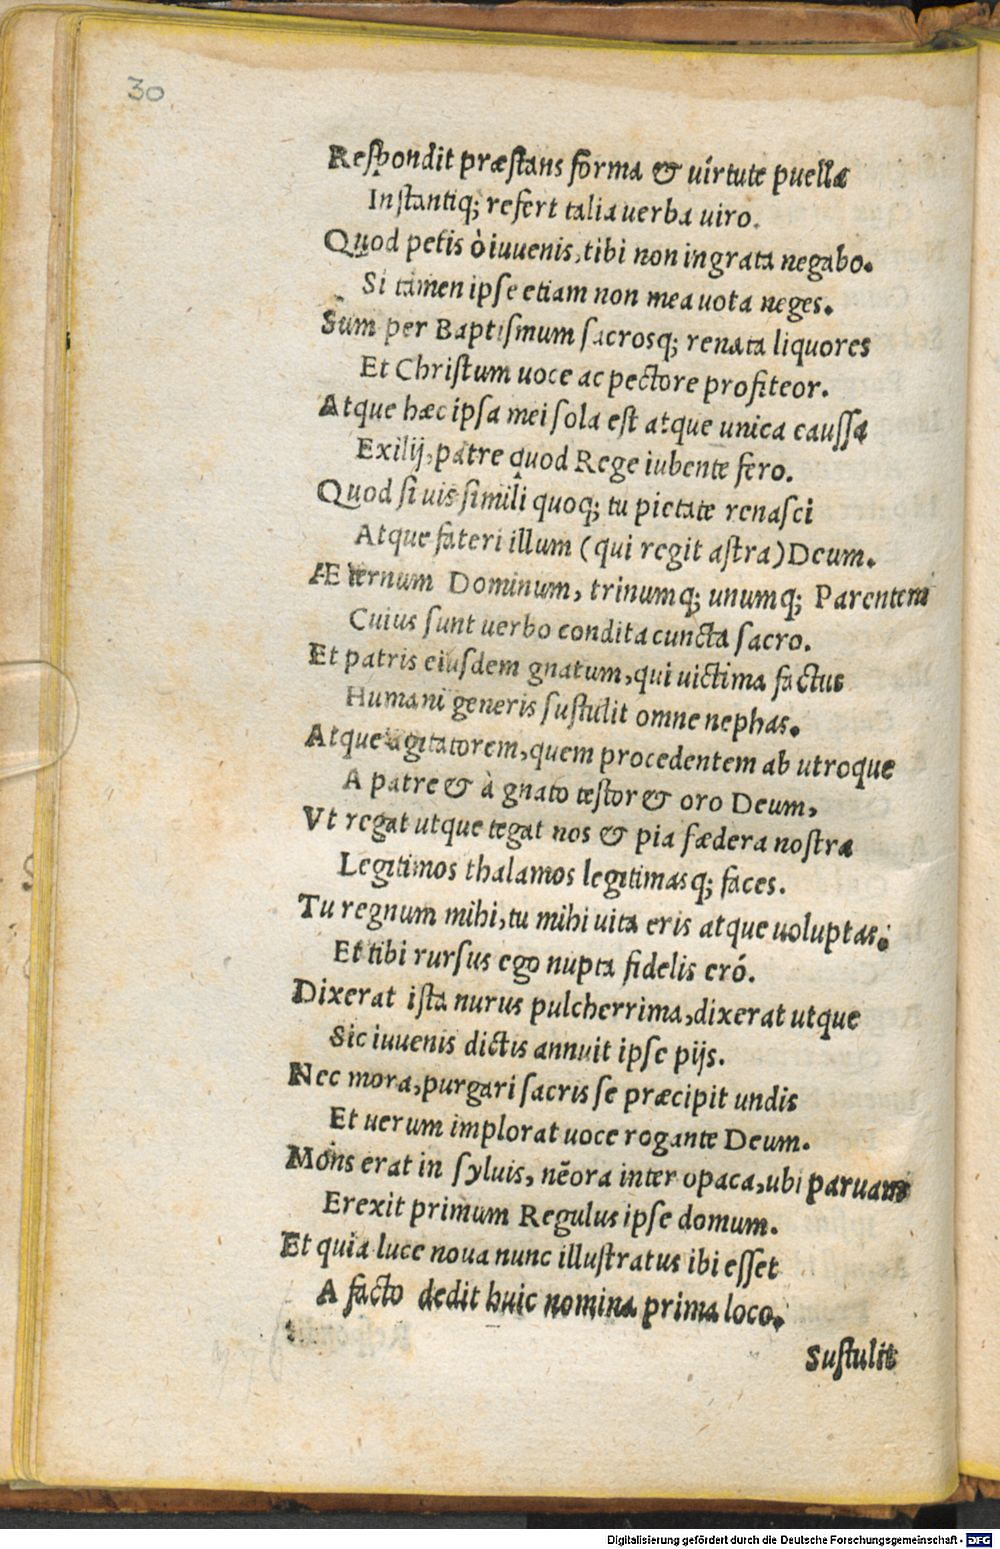 30
Respondit præstans forma & uirtute puella
Instantiq; refert talia uerba uiro.
Quod petis ò iuuenis, tibi non ingrata negabo.
Si tamen ipse etiam non mea uota neges.
Sum per Baptismum sacrosq; renata liquores
Et Christum uoce ac pectore profiteor.
Atque hæc ipsa mei sola est atque unica caussa
Exilij, patre quod Rege iubente fero.
Quod si uis simili quoq; tu pietate renasci
Atque fateri illum (qui regit astra) Deum.
Æternum Dominum, trinumq; unumq; Parentem
Cuius sunt uerbo condita cuncta sacro.
Et patris eiusdem gnatum, qui uictima factus
Humani generis sustulit omne nephas.
Atque agitatorem, quem procedentem ab utroque
A patre & à gnato testor & oro Deum,
Vt regat utque tegat nos & pia fædera nostra
Legitimos thalamos legitimasq; faces.
Tu regnum mihi, tu mihi uita eris atque uoluptas.
Et tibi rursus ego nupta fidelis eró.
Dixerat ista nurus pulcherrima, dixerat utque
Sic iuuenis dictis annuit ipse pijs.
Nec mora, purgari sacris se præcipit undis
Et uerum implorat uoce rogante Deum.
Mons erat in syluis, nẽora inter opaca, ubi paruam
Erexit primum Regulus ipse domum.
Et quia luce noua nunc illustratus ibi esset
A facto dedit huic nomina prima loco.
Sustulit
Digitalisierung gefördert durch die Deutsche Forschungsgemeinschaft - DFG